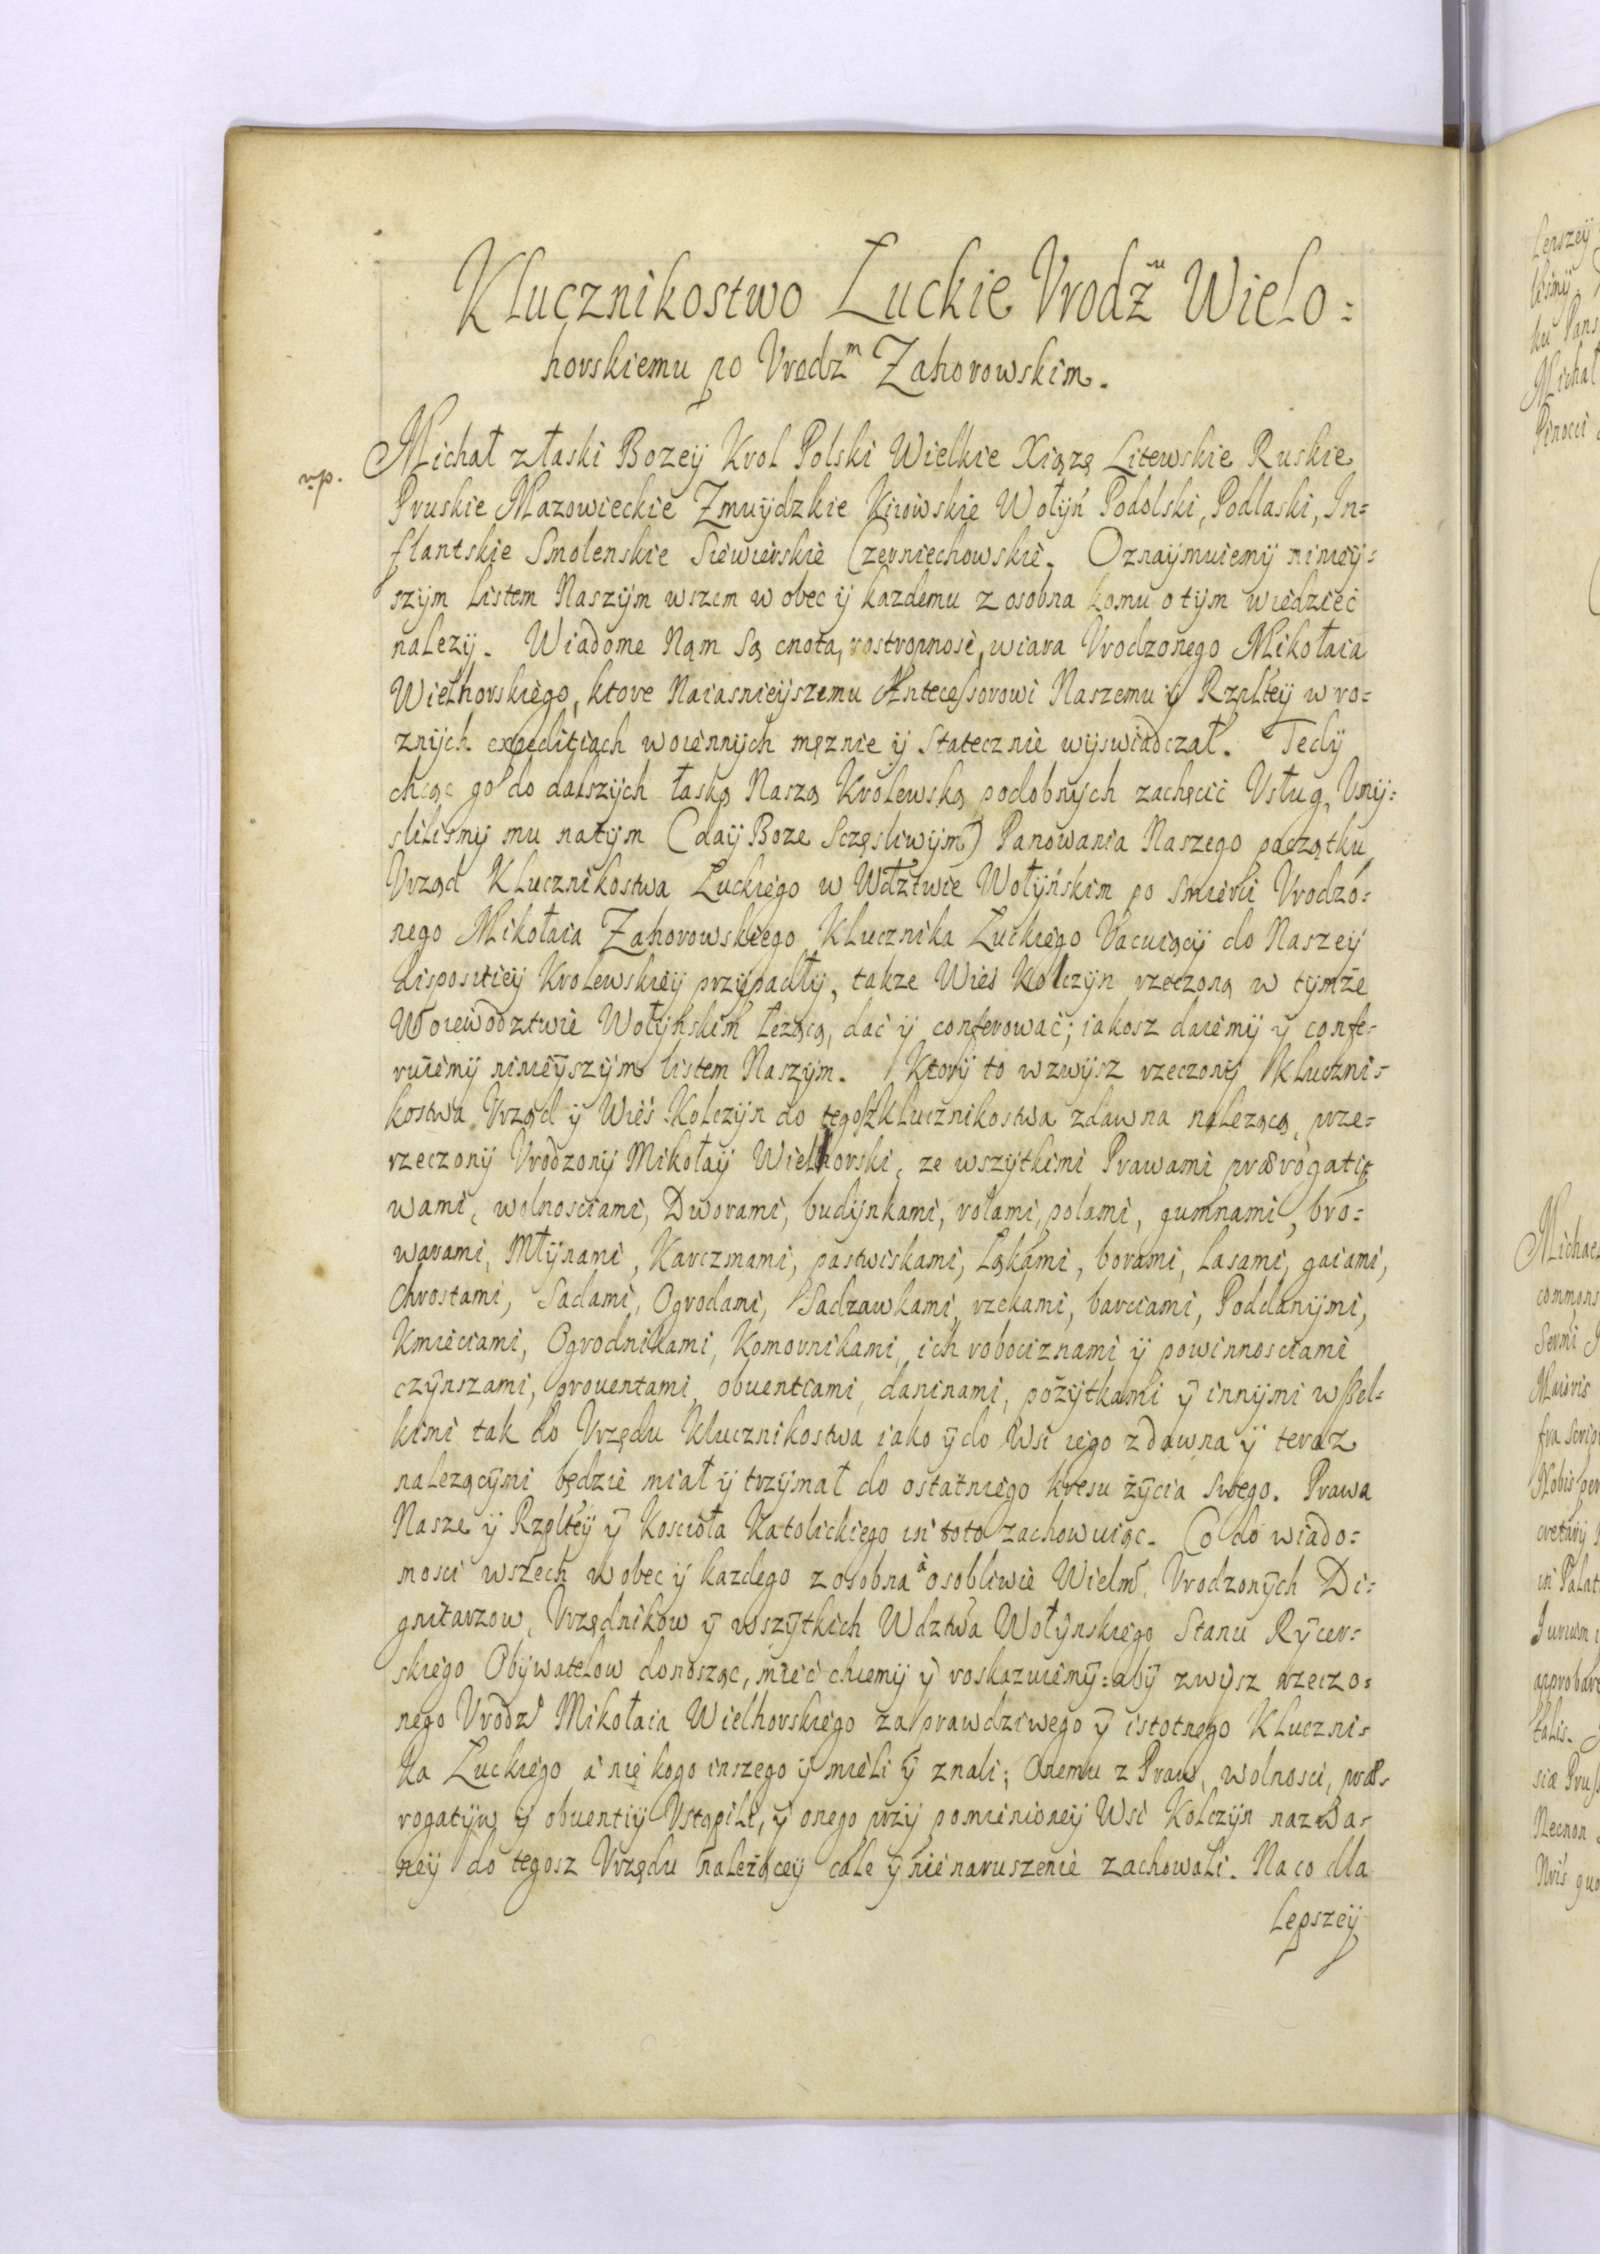 Klucznikostwo Łuckie Vrodz.u Wielo=
horskiemu po Vrodz.m Zahorowskim.
v.p.
Michał z łaski Bozey Krol Polski Wielkie Xiążę Litewskie Ruskie
Pruskie Mazowieckie Zmuydzkie Kiiowskie Wołyń Podolski, Podlaski, In=
flantskie Smolenskie Siewierskie Czerniechowskie. Oznaymuiemy ninieÿ=
szÿm listem Naszÿm wszem w obec ÿ kazdemu z osobna komu o tÿm wiedzieć
nalezÿ. Wiadome Nąm Są cnota, rostropnosć, wiara Vrodzonego Mikołaia
Wielhorskiego, ktore Naiasnieÿszemu Antecessorowi Naszemu ÿ Rzpltey w ro=
znÿch expeditiach woiennÿch męznie ÿ Statecznie wyswiadczał. Tedÿ
chcąc go do dalszÿch łaską Naszą Krolewską podobnÿch zachęcić Vsług, Vmÿ=
sliliśmy mu na tÿm (daÿ Boze Sczęsliwÿm) Panowania Naszego początku
Vrząd Klucznikostwa Łuckiego w Wdztwie Wołÿńskim po Smierci Vrodzo=
nego Mikołaia Zahorowskiego Klucznika Łuckiego Vacuiącÿ do Naszeÿ
dispositieÿ Krolewskieÿ przÿpadłÿ, takze Wieś Kolczÿn rzeczoną w tÿmże
Woiewodztwie Wołÿnskim leżącą, dać ÿ conferować; iakosz daiemÿ ÿ confe=
ruiemÿ ninieÿszÿm listem Naszÿm. Ktorÿ to wzwÿsz rzeczonÿ Kluczni=
kostwa Vrząd ÿ Wieś Kolczÿn do tegosz Klucznikostwa zdawna nalezącą, prze=
rzeczonÿ Vrodzonÿ Mikołaÿ Wielhorski, ze wszÿtkimi Prawami, prærogatÿ
wami, wolnosciami, Dworami, budÿnkami, rolami, polami, gumnami, bro=
warami, Młÿnami, Karczmami, pastwiskami, Łąkami, borami, Lasami, gaiami,
Chrostami, Sadami, Ogrodami, Sadzawkami, rzekami, barciami, Poddanÿmi,
Kmieciami, Ogrodnikami, Komornikami, ich robociznami ÿ powinnosciami
czÿnszami, prouentami, obuentiami, daninami, pożÿtkami ÿ innÿmi wszel=
kimi tak do Vrzędu Klucznikostwa iako ÿ do Wsi iego zdawna ÿ teraz
nalezącÿmi będzie miał ÿ trzÿmał do ostatniego kresu żÿcia swego. Prawa
Nasze ÿ Rzplteÿ ÿ Koscioła Katolickiego in toto zachowuiąc. Co do wiado=
mosci wszech w obec ÿ kazdego z osobna à osobliwie Wielm. Vrodzonÿch Di=
gnitarzow, Vrzędnikow ÿ wszÿtkich Wdztwa Wołÿnskiego Stanu Rÿcer=
skiego Obÿwatelow donosząc, mieć chcemÿ ÿ roskazuiemÿ: abÿ zwÿsz rzeczo=
nego Vrodz.o Mikołaia Wielhorskiego za prawdziwego ÿ istotnego Kluczni=
ka Łuckiego a nie kogo inszego ÿ mieli ÿ znali; Onemu z Praw, wolnosci, præ=
rogatÿw ÿ obuentiÿ Vstąpili, ÿ onego przÿ pomienioneÿ Wsi Kolczÿn nazwa=
neÿ do tegosz Vrzędu należąceÿ całe ÿ nienaruszenie zachowali. Na co dla
Lepszeÿ